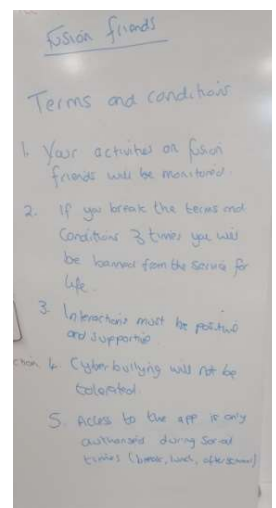 fusion friends
Terms and conditions
1. Your activities on fusion
friends will be monitored.
2. If you break the terms and
Conditions 3 times you will
be banned from the service for
life.
3. Interactions must be positive
and supportive
4. Cyberbullying will not be
tolerated.
5. Access to the app is only
authorised during social
times (break, lunch, afterschool)